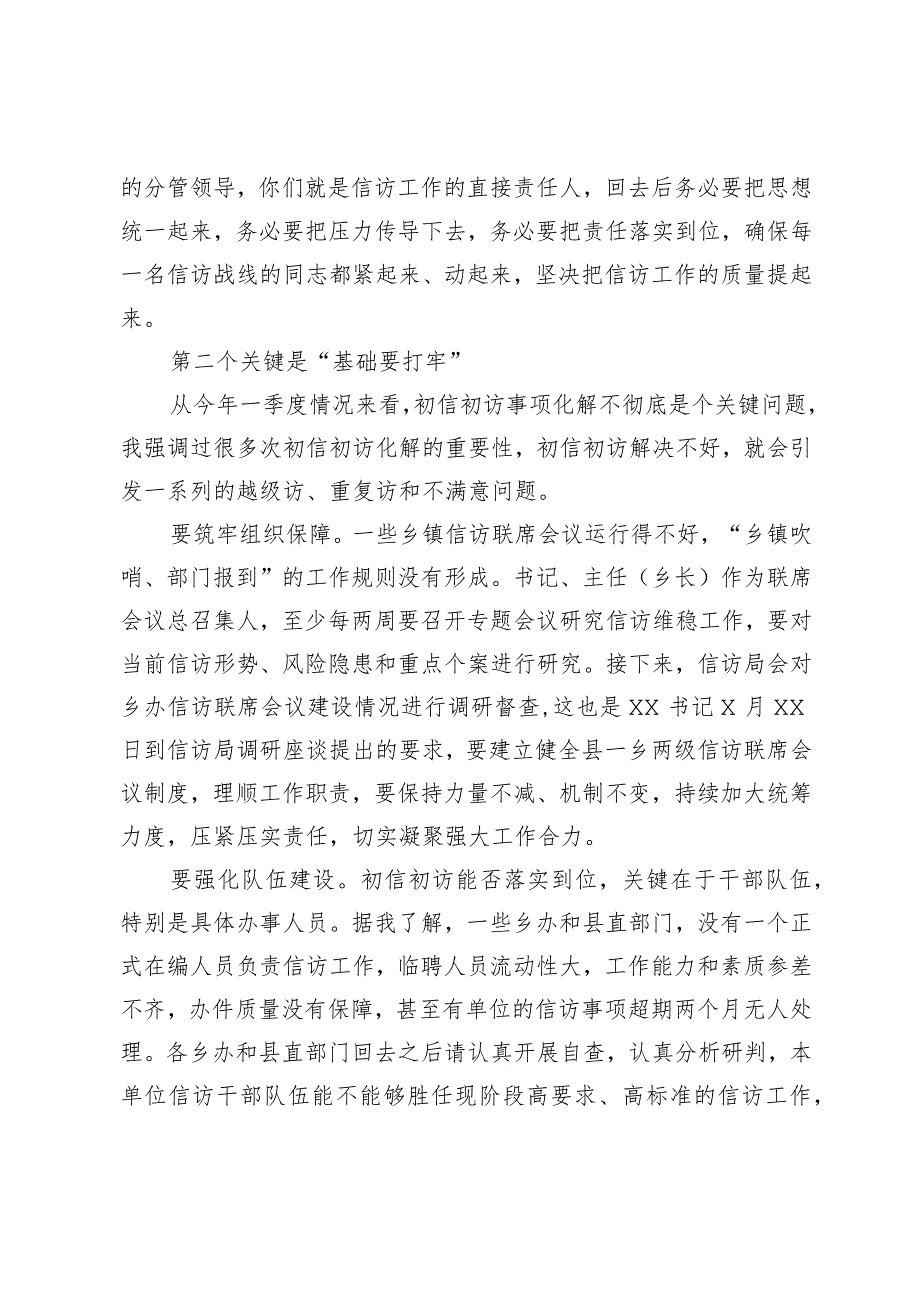 的分管领导，你们就是信访工作的直接责任人，回去后务必要把思想
统一起来，务必要把压力传导下去，务必要把责任落实到位，确保每
一名信访战线的同志都紧起来、动起来，坚决把信访工作的质量提起
来。
第二个关键是“基础要打牢”
从今年一季度情况来看,初信初访事项化解不彻底是个关键问题，
我强调过很多次初信初访化解的重要性，初信初访解决不好，就会引
发一系列的越级访、重复访和不满意问题。
要筑牢组织保障。一些乡镇信访联席会议运行得不好，“乡镇吹
哨、部门报到”的工作规则没有形成。书记、主任（乡长）作为联席
会议总召集人，至少每两周要召开专题会议研究信访维稳工作，要对
当前信访形势、风险隐患和重点个案进行研究。接下来，信访局会对
乡办信访联席会议建设情况进行调研督查,这也是 XX 书记 X 月 XX
日到信访局调研座谈提出的要求，要建立健全县一乡两级信访联席会
议制度，理顺工作职责，要保持力量不减、机制不变，持续加大统筹
力度，压紧压实责任，切实凝聚强大工作合力。
要强化队伍建设。初信初访能否落实到位，关键在于干部队伍，
特别是具体办事人员。据我了解，一些乡办和县直部门，没有一个正
式在编人员负责信访工作，临聘人员流动性大，工作能力和素质参差
不齐，办件质量没有保障，甚至有单位的信访事项超期两个月无人处
理。各乡办和县直部门回去之后请认真开展自查，认真分析研判，本
单位信访干部队伍能不能够胜任现阶段高要求、高标准的信访工作，